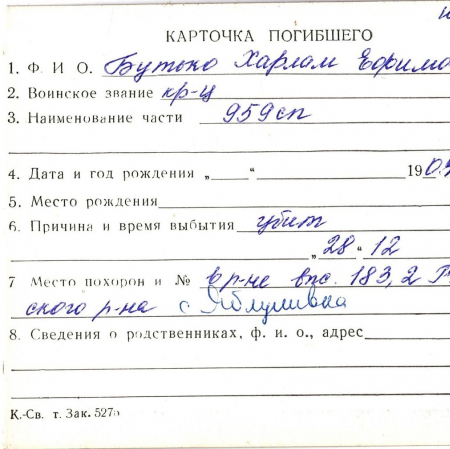 КАРТОЧКА ПОГИБШЕГО
1. Ф. И О. Бутько Харлам Ефимо
2. Воинское звание кр-ц
3. Наименование части 959сп
4. Дата и год рождения „ “ 190
5. Место рождения
6. Причина и время выбытия убит
„28“ 12
7 Место похорон и № в р-не выс. 183,2
ского р-на с. Яблуневка
8. Сведения о родственниках, ф. и. о., адрес
К.-Св. т. Зак. 527